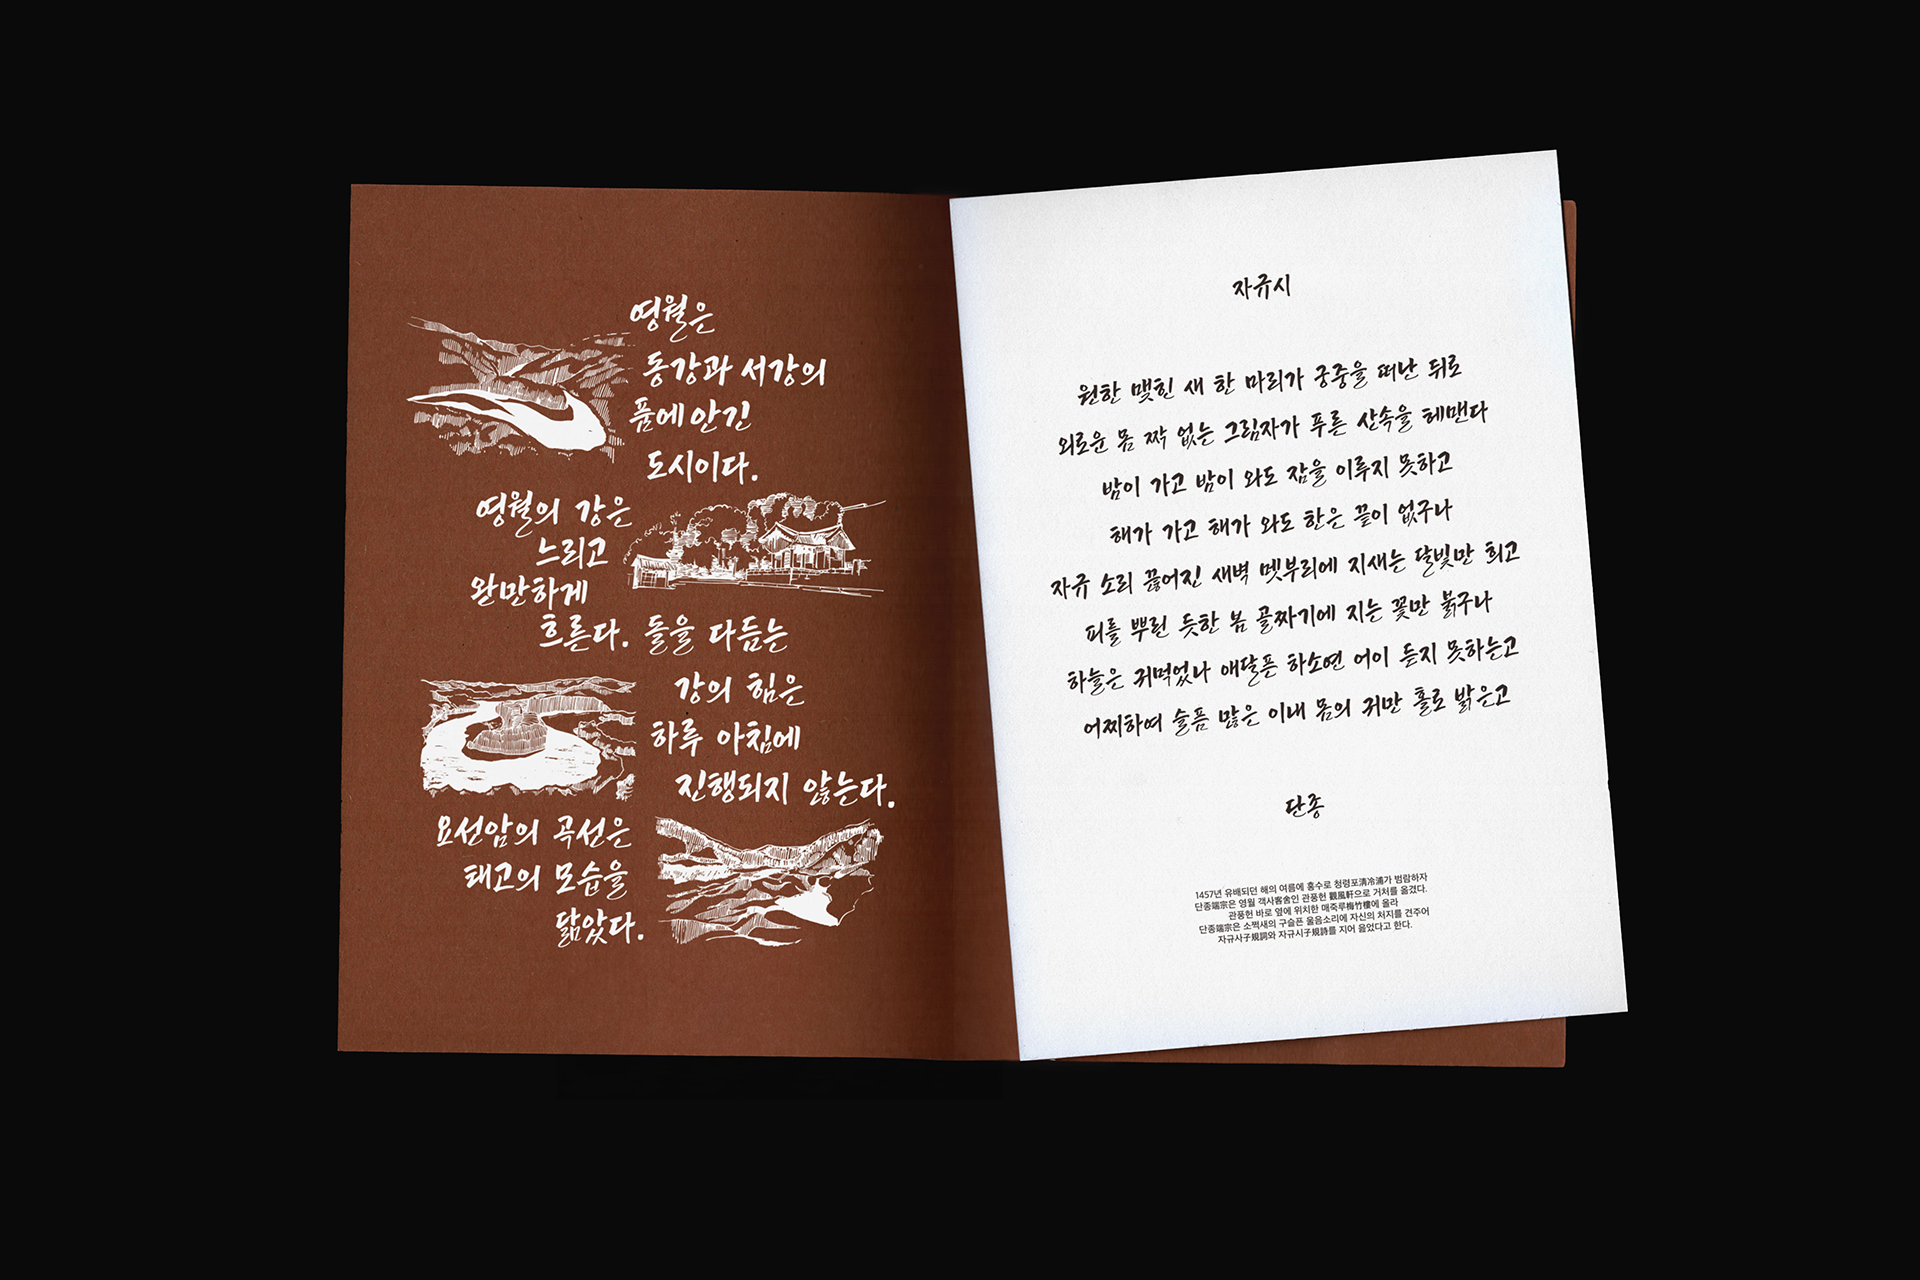 영월은
동강과 서강의
품에 안긴
도시이다.
영월의 강은
느리고
완만하게
흐른다. 돌을 다듬는
강의 힘은
하루 아침에
진행되지 않는다.
요선암의 곡선은
태고의 모습을
닮았다.
자규시
원한 맺힌 새 한 마리가 궁중을 떠난 뒤로
외로운 몸 짝 없는 그림자가 푸른 산속을 헤맨다
밤이 가고 밤이 와도 잠을 이루지 못하고
해가 가고 해가 와도 한은 끝이 없구나
자규 소리 끊어진 새벽 멧부리에 지새는 달빛만 희고
피를 뿌린 듯한 봄 골짜기에 지는 꽃만 붉구나
하늘은 귀먹었나 애달픈 하소연 어이 듣지 못하는고
어찌하여 슬픔 많은 이내 몸의 귀만 홀로 밝은고
단종
1457년 유배되던 해의 여름에 홍수로 청령포清冷浦가 범람하자
단종端宗은 영월 객사客舍인 관풍헌 觀風軒으로 거처를 옮겼다.
관풍헌 바로 옆에 위치한 매죽루梅竹樓에 올라
단종端宗은 소쩍새의 구슬픈 울음소리에 자신의 처지를 견주어
자규사子規詞와 자규시子規詩를 지어 읊었다고 한다.